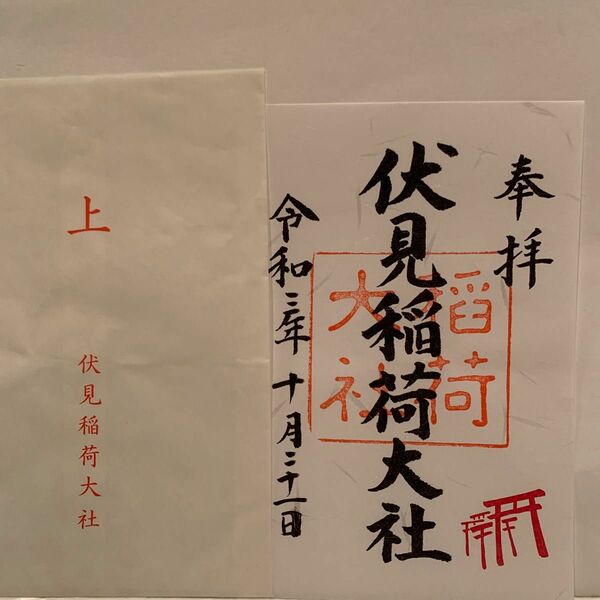 上
伏見稲荷大社
奉拝
伏見稲荷大社
稲荷
大社
令和三年十月二十一日